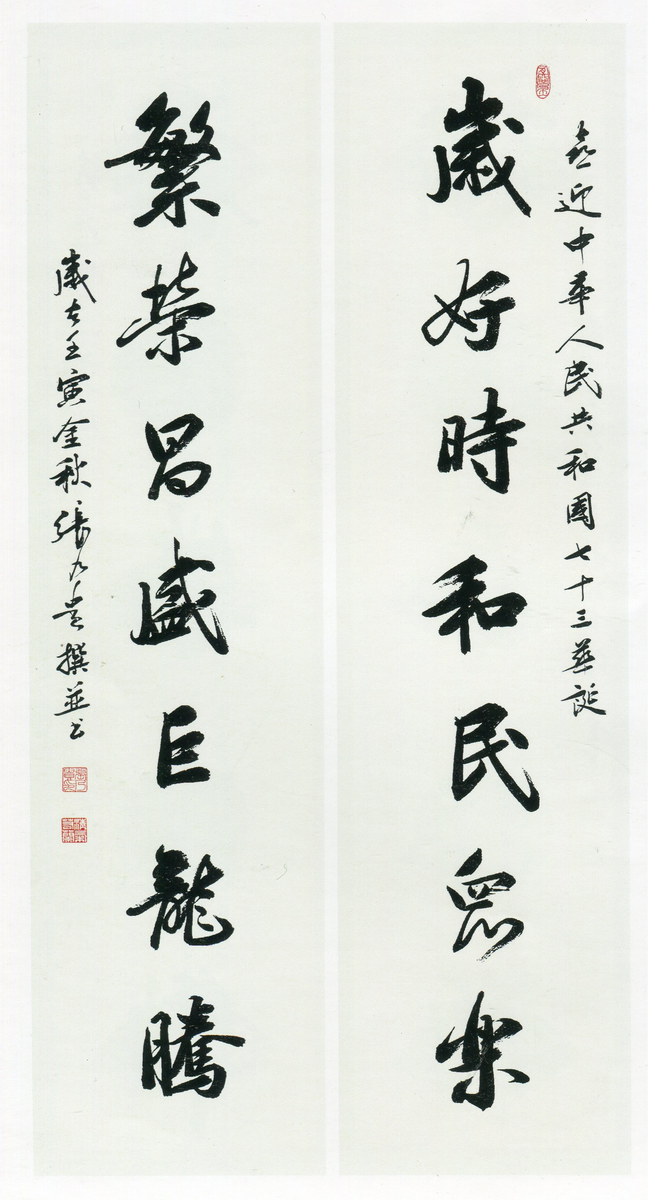 喜迎中華人民共和國七十三華誕
歲好時和民眾樂
繁榮昌盛巨龍騰
歲在壬寅金秋張撰並書